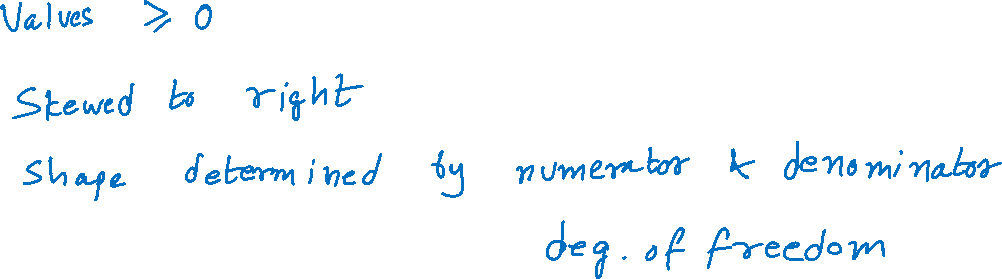 Values ⩾ 0
Skewed to right
Shape determined by numerator & denominator
deg. of freedom